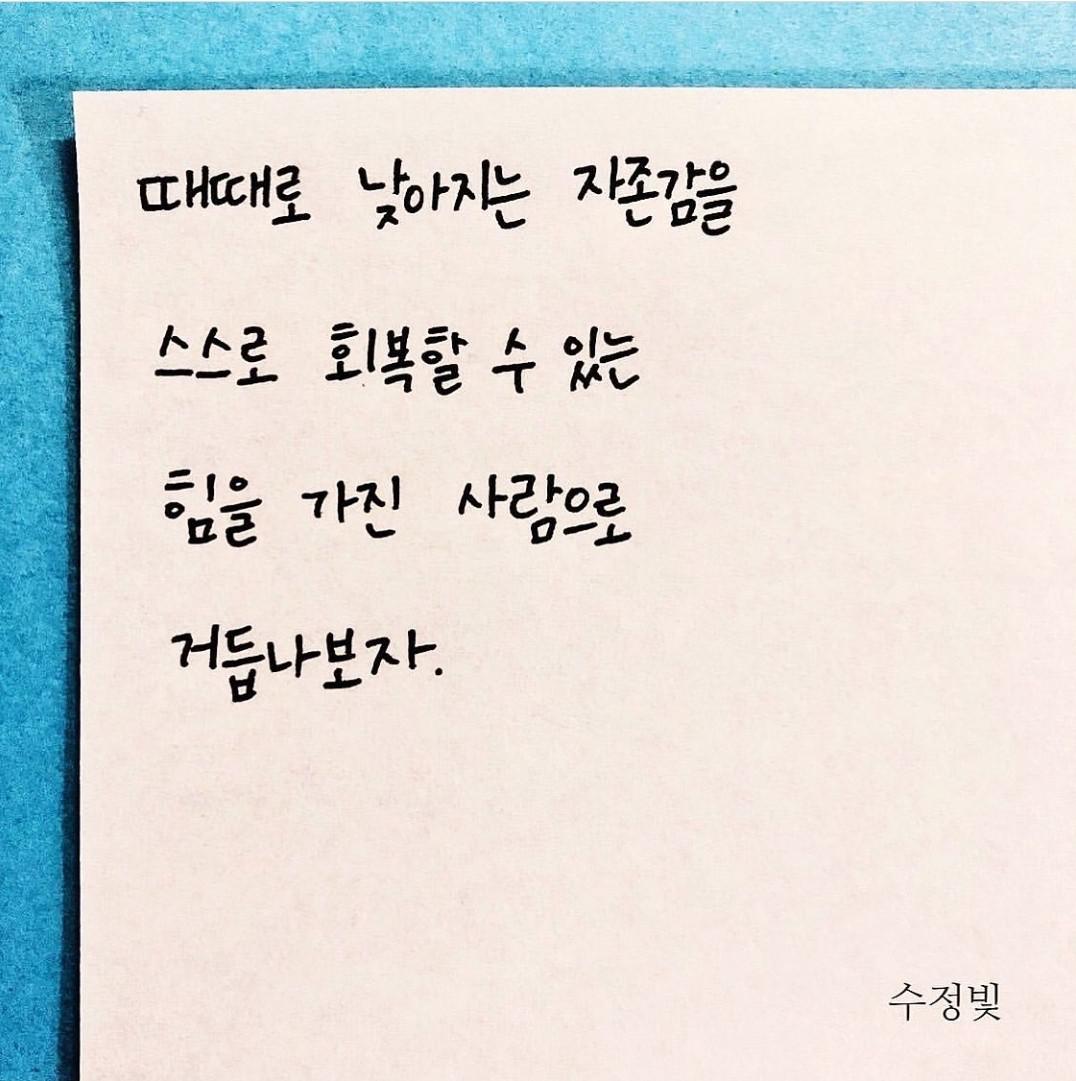 때때로 낮아지는 자존감을
스스로 회복할 수 있는
힘을 가진 사람으로
거듭나보자.
수정빛